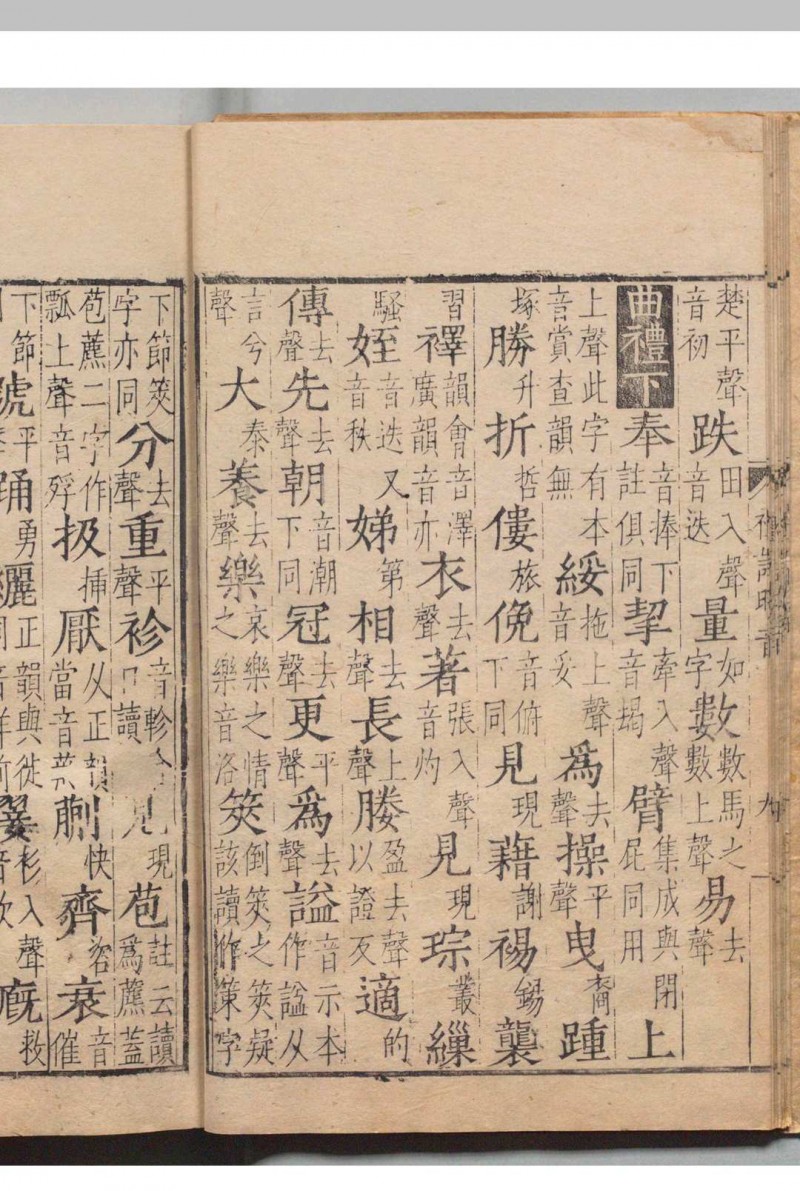 楚平聲音初跌田入聲音迭量如字數數馬之數上聲易去聲
曲禮下奉音捧下註俱同挈牽入聲音朅臂集成與閉屁同用上
上聲此字有本音賞查韻無綏音妥拖上聲為去聲操平聲曳裔踵
塚勝升折哲僂旅俛音俯下同見現藉謝裼錫襲
習襗韻會音澤廣韻音亦衣去聲著張入聲音灼見現琮叢繅
騷姪音迭又音秩娣第相去聲長上聲媵盈去聲以證反適的
傳去聲先去聲朝音潮下同冠去聲更平聲為去聲諡音示本作謚从
言兮聲大泰養去聲樂哀樂之情之樂音洛筴倒筴之筴疑該讀作策字
下節筴字亦同分去聲重平聲袗音軫見現苞註云讀為藨蓋
苞藨二字作瓢上聲音殍扱插厭从正韻當音蒯快齊咨衰音催